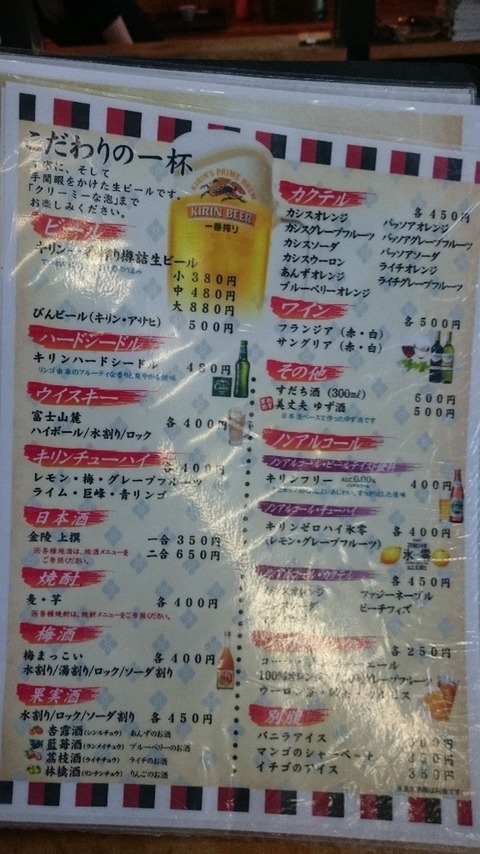 こだわりの一杯
手間暇をかけた生ビールです。
「クリーミーな泡」まで
お楽しみください。
KIRIN'S PRIME BREW
KIRIN BEER
一番搾り
ビール
樽詰生ビール
小 380円
中 480円
大 880円
びんビール(キリン・アサヒ) 500円
ハードシードル
キリンハードシードル 480円
ウイスキー
富士山麓
ハイボール/水割り/ロック
各400円
キリンチューハイ
各400円
レモン・梅・グレープフルーツ
ライム・巨峰・青リンゴ
日本酒
金陵 上撰
一合 350円
二合 650円
※各種地酒は、地酒メニューを
ご参照ください。
焼酎
麦・芋 各400円
※各種焼酎は、焼酎メニューをご参照ください。
梅酒
梅まっこい 各400円
水割り/湯割り/ロック/ソーダ割り
果実酒
水割り/ロック/ソーダ割り 各450円
杏露酒(シンルチュウ) あんずのお酒
藍苺酒(ランメイチュウ) ブルーベリーのお酒
茘枝酒(ライチチュウ) ライチのお酒
林檎酒(リンチンチュウ) りんごのお酒
カクテル
各450円
カシスオレンジ
カシスグレープフルーツ
カシスソーダ
カシスウーロン
あんずオレンジ
ブルーベリーオレンジ
パッソアオレンジ
パッソアグレープフルーツ
パッソアソーダ
ライチオレンジ
ライチグレープフルーツ
ワイン
各500円
フランジア(赤・白)
サングリア(赤・白)
その他
すだち酒(300㎖) 600円
美丈夫 ゆず酒 500円
日本酒ベースで作ったゆず酒です
ノンアルコール
ノンアルコール・ビールテイスト飲料
キリンフリー 400円
ノンアルコール・チューハイ
キリンゼロハイ氷零 各400円
(レモン・グレープフルーツ)
氷零
各450円
ファジーネーブル
ピーチフィズ
各250円
別腹
バニラアイス
マンゴのシャーベット
イチゴのアイス